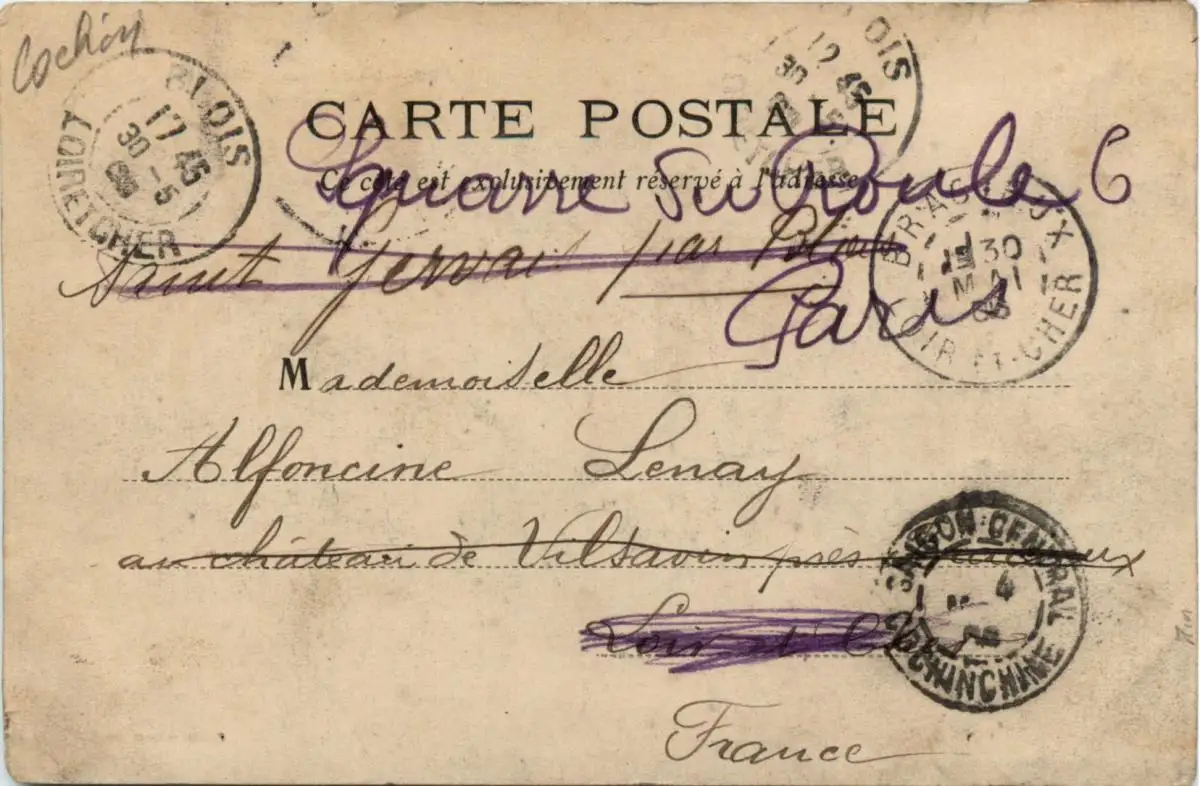 Cochin
BLOIS
17 45
30 -5
LOIR ET CHER
OIS
12 45
30
CARTE POSTALE
Ce côté est exclusivement réservé à l'adresse
Square du Roule 6
Saint Gervais par Blois
Paris
BRACIEUX
30
MAI
LOIR ET CHER
Mademoiselle
Alfoncine Lenay
au château de Vilsavin près Bracieux
Loir et Cher
France
SAIGON-CENTRAL
4
COCHINCHINE